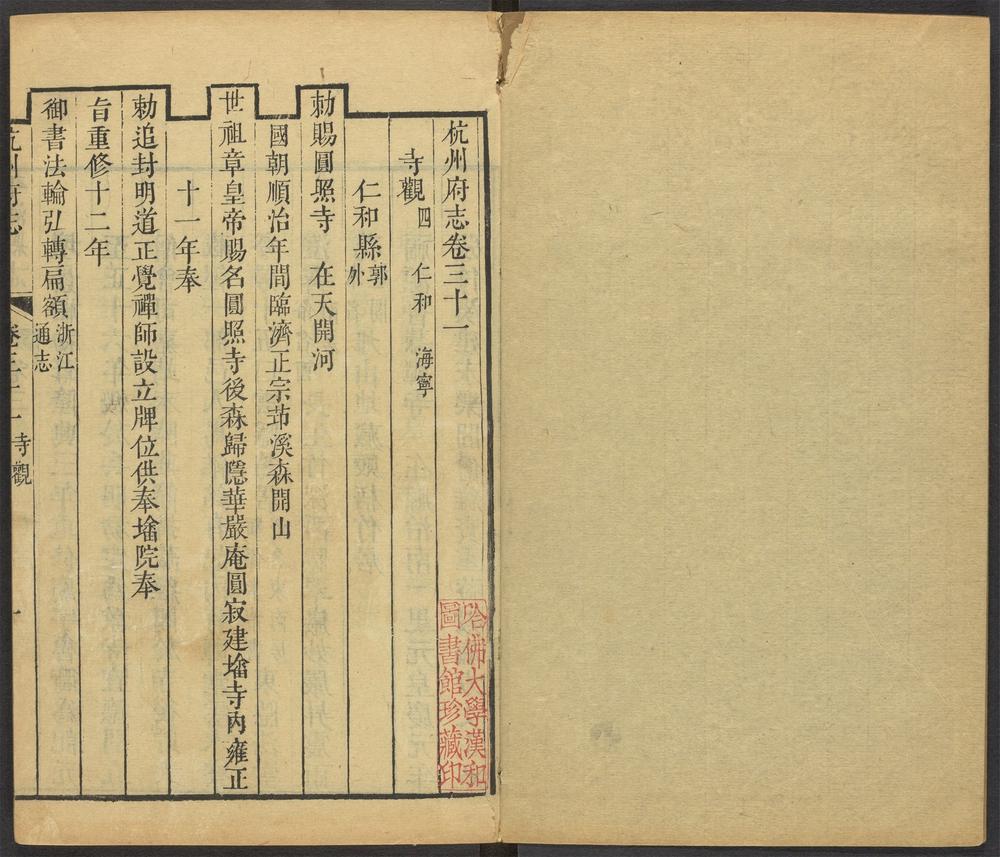 杭州府志卷三十一
寺觀四 仁和 海寧
仁和縣郭外
勅賜圓照寺 在天開河
國朝順治年間臨濟正宗茆溪森開山
世祖章皇帝賜名圓照寺後森歸隱華嚴庵圓寂建墖寺內雍正
十一年奉
勅追封明道正覺禪師設立牌位供奉墖院奉
旨重修十二年
御書法輪弘轉扁額浙江通志
杭州府志 卷三十一 寺觀 一
哈佛大學漢和
圖書館珍藏印